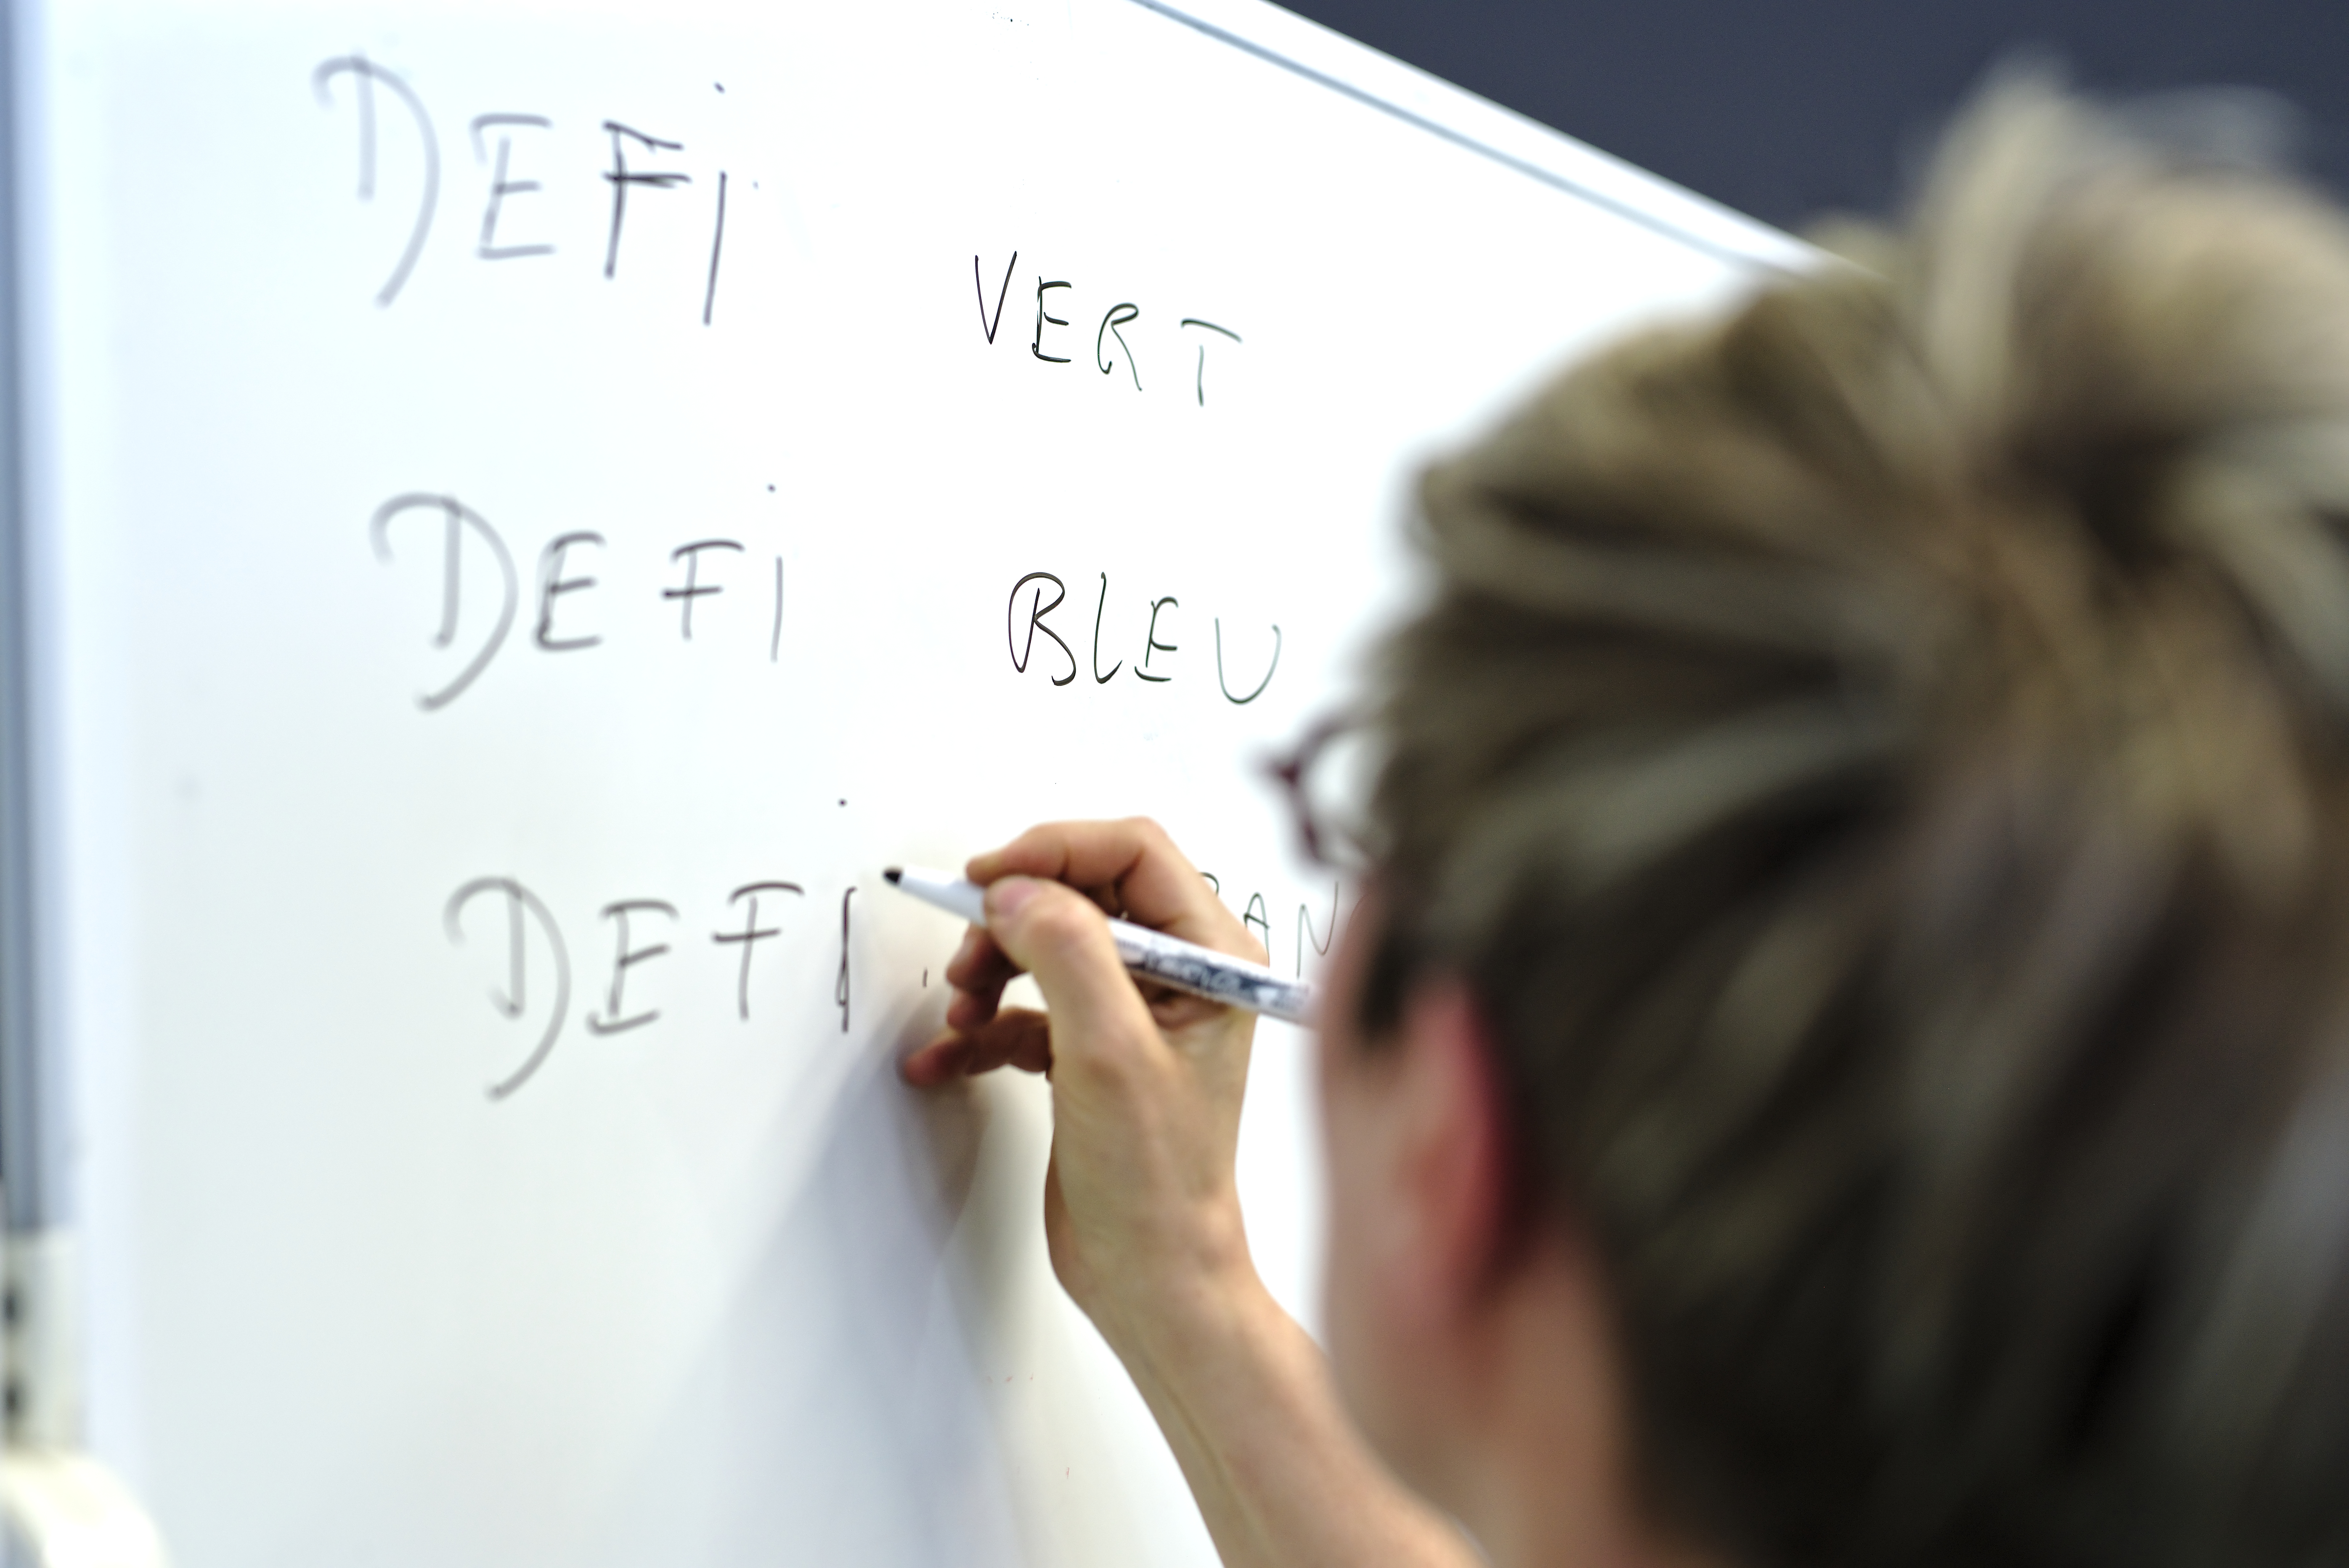 DEFI VERT
DEFI BLEU
DEFI